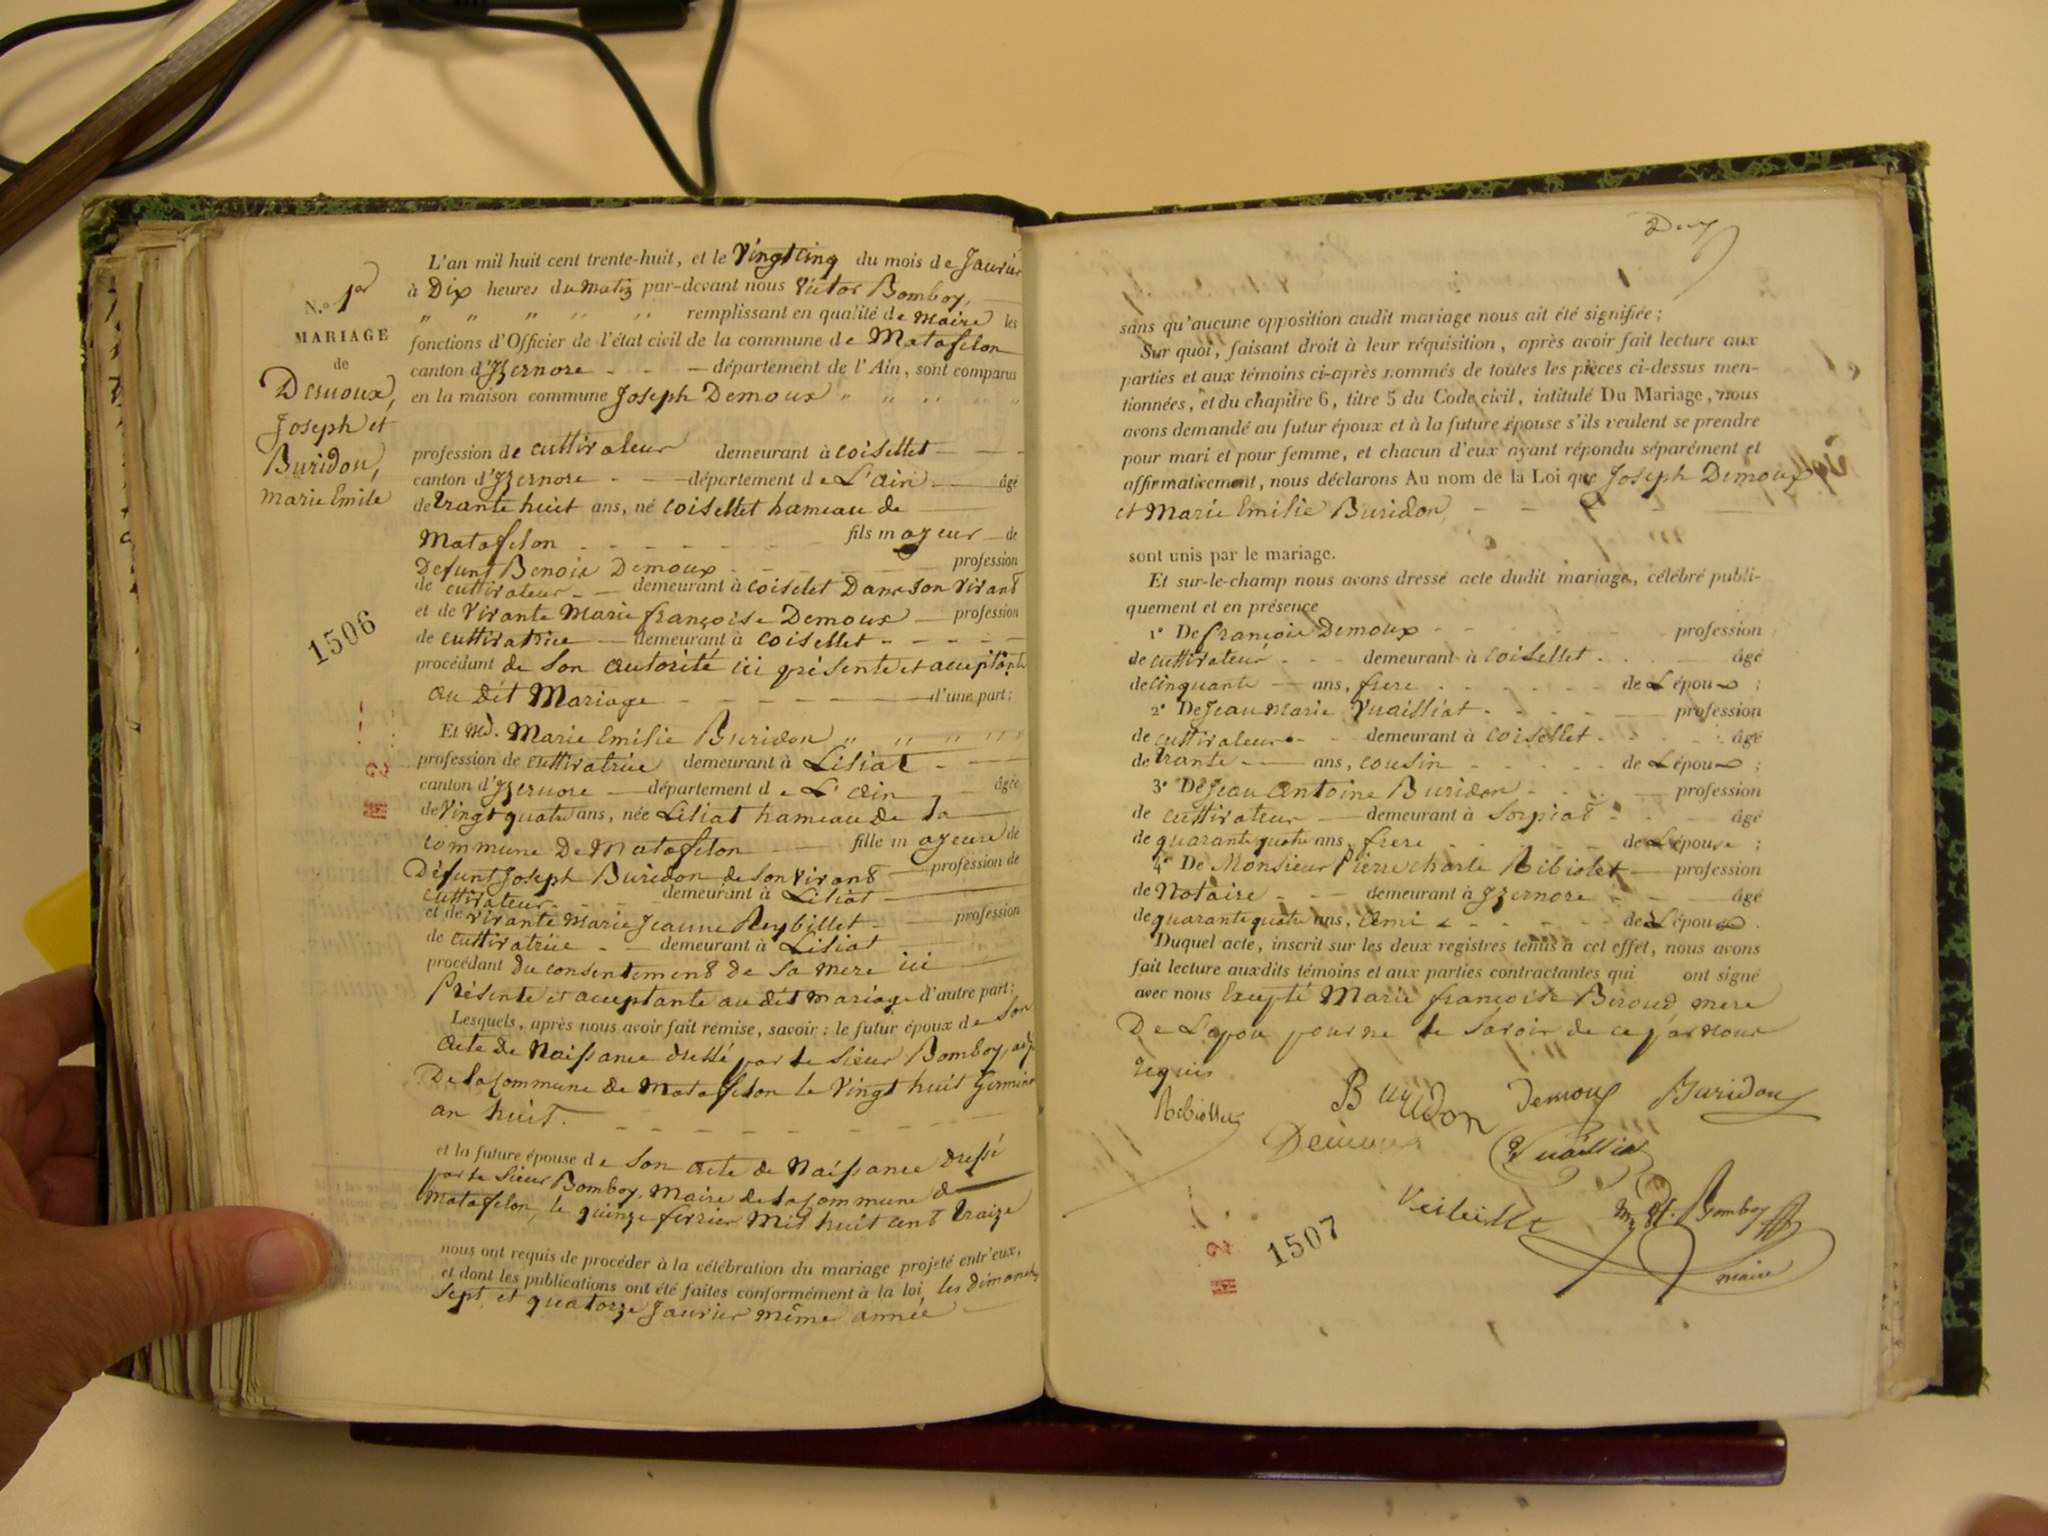 N.º 1er
MARIAGE
de
Demoux,
Joseph et
Buridon,
Marie Emilie
1506
L'an mil huit cent trente-huit, et le Vingt cinq du mois de Janvier
à Dix heures du matin par-devant nous Victor Bomboy,
" " " " " remplissant en qualité de maire les
fonctions d'Officier de l'état civil de la commune de Matafelon
canton d'Yzernore - - - département de l'Ain, sont comparus
en la maison commune Joseph Demoux " " " " "
profession de cultivateur demeurant à coisellet - - -
canton d'Yzernore - - département de L'Ain - âgé
de trante huit ans, né coisellet hameau de
Matafelon - - - - - - - fils mayeur - de
Defunt Benoit Demoux - - - - - profession
de cultivateur - - demeurant à coiselet Dans son vivant
et de vivante Marie françoise Demoux - profession
de cultivatrice - demeurant à coisellet - - - - -
procédant de son autorité ici présente et acceptante
au dit Mariage - - - - - - d'une part;
Et Md. Marie Emilie Buridon " " " " "
profession de cultivatrice demeurant à Lisiat - - -
canton d'Yzernore - département de L'Ain - âgée
de Vingt quatre ans, née Lisiat hameau de la
commune De Matafelon - - fille mayeure de
Défunt Joseph Buridon de son vivant - profession de
cultivateur - - - demeurant à Lisiat -
et de vivante Marie Jeanne Reybillet - profession
de cultivatrice - - demeurant à Lisiat
procédant du consentement de sa mere ici
Présente et acceptante au dit mariage d'autre part;
Lesquels, après nous avoir fait remise, savoir : le futur époux de son
acte de Naissance dressé par le Sieur Bomboy,
De la Commune de Matafelon le Vingt huit Germinal
an huit. - - - - - - - -
et la future épouse de son acte de Naissance dressé
par le Sieur Bomboy, Maire de la Commune de
Matafelon, le quinze fevrier mil huit cent traize
nous ont requis de procéder à la célébration du mariage projeté entr'eux,
et dont les publications ont été faites conformément à la loi, les dimanches
Sept et quatorze Janvier même année
Deux
sans qu'aucune opposition audit mariage nous ait été signifiée ;
Sur quoi, faisant droit à leur réquisition, après avoir fait lecture aux
parties et aux témoins ci-après nommés de toutes les pièces ci-dessus men-
tionnées, et du chapitre 6, titre 5 du Code civil, intitulé Du Mariage, nous
avons demandé au futur époux et à la future épouse s'ils veulent se prendre
pour mari et pour femme, et chacun d'eux ayant répondu séparément et
affirmativement, nous déclarons Au nom de la Loi que Joseph Demoux
et Marie Emilie Buridon
sont unis par le mariage.
Et sur-le-champ nous avons dressé acte dudit mariage, célébré publi-
quement et en présence
1º De françois Demoux - - - - - profession
de cultivateur - - - demeurant à coisellet - - - âgé
de cinquante - ans, frere - - - - - de L'époux ;
2º De Jean Marie Vuailliat - - - - profession
de cultivateur - - demeurant à coisellet - - - âgé
de trante - - ans, cousin - - - - - de L'époux ;
3º De Jean Antoine Buridon - - - - profession
de cultivateur - demeurant à Sorpiat - - âgé
de quarante quatre ans, frere - - - - de L'épouse ;
4º De Monsieur Pierre charle Ribiolet - profession
de Notaire - - - demeurant à Yzernore - - âgé
de quarante quatre ans, Ami - - - - - de L'épouse.
Duquel acte, inscrit sur les deux registres tenus à cet effet, nous avons
fait lecture auxdits témoins et aux parties contractantes qui ont signé
avec nous Excepté Marie françoise Beroud mere
De L'epou pour ne le savoir de ce par nous
requis
Ribiollet Buridon Demoux Buridon
Demoux Vuailliat
Bomboy
maire
1507